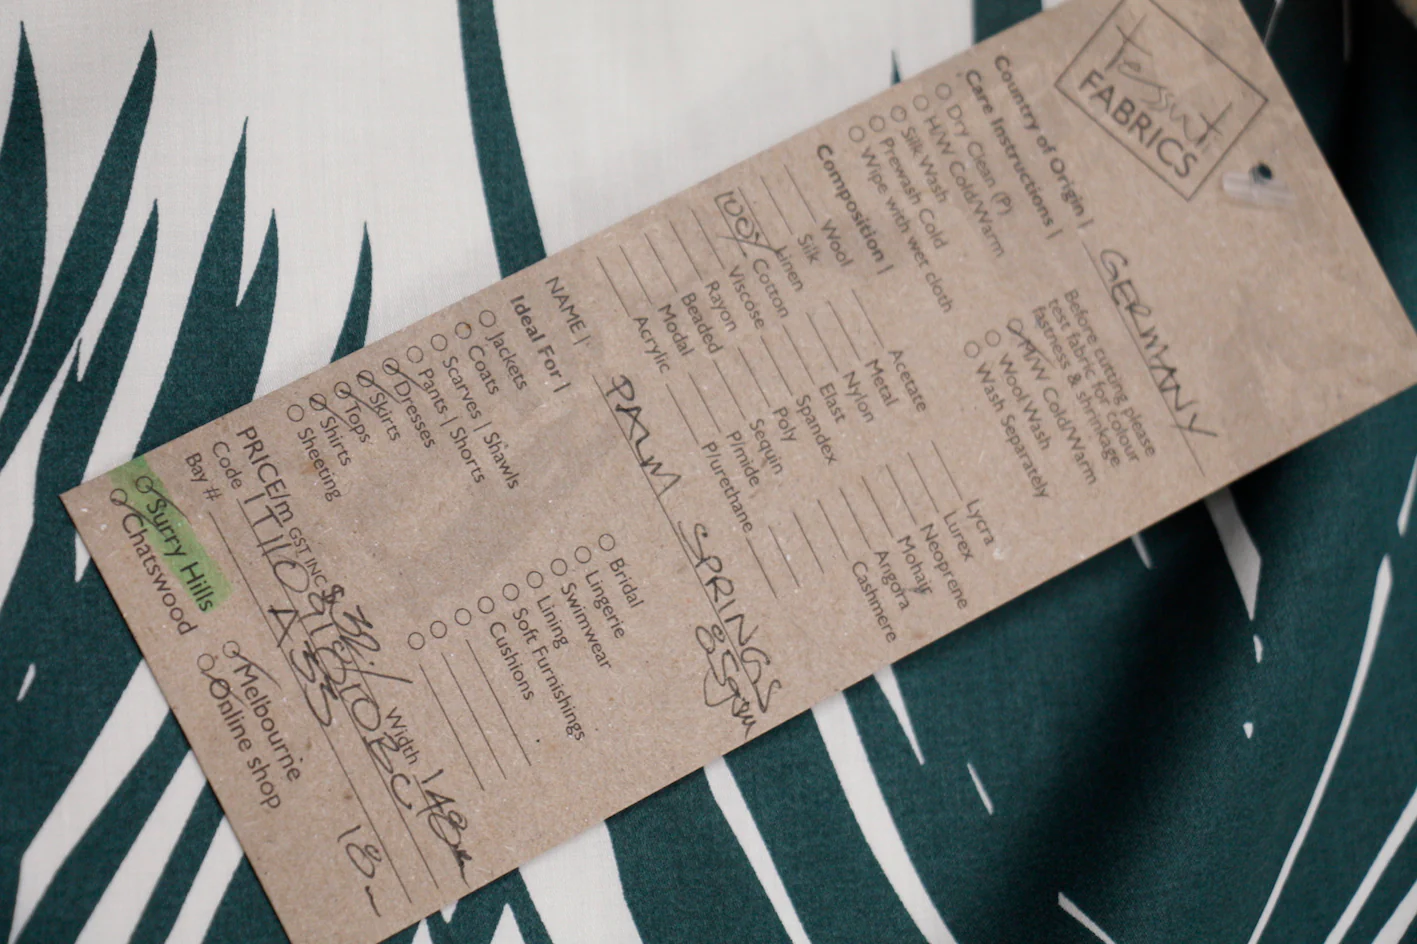 tessuti
FABRICS
Country of Origin | GERMANY
Care Instructions |
Before cutting please
test fabric for colour
fastness & shrinkage
Dry Clean (P)
H/W Cold/Warm
Silk Wash
Prewash Cold
Wipe with wet cloth
M/W Cold/Warm
Wool Wash
Wash Separately
Composition |
Wool
Silk
Linen
100% Cotton
Viscose
Rayon
Beaded
Modal
Acrylic
Acetate
Metal
Nylon
Elast
Spandex
Poly
Sequin
P/mide
P/urethane
Lycra
Lurex
Neoprene
Mohair
Angora
Cashmere
NAME | PALM SPRINGS
85gsm
Ideal For |
Jackets
Coats
Scarves | Shawls
Pants | Shorts
Dresses
Skirts
Tops
Shirts
Sheeting
Bridal
Lingerie
Swimwear
Lining
Soft Furnishings
Cushions
PRICE/m GST INC Width 148cm
Code
Bay # A33 18m
Surry Hills
Chatswood
Melbourne
Online shop